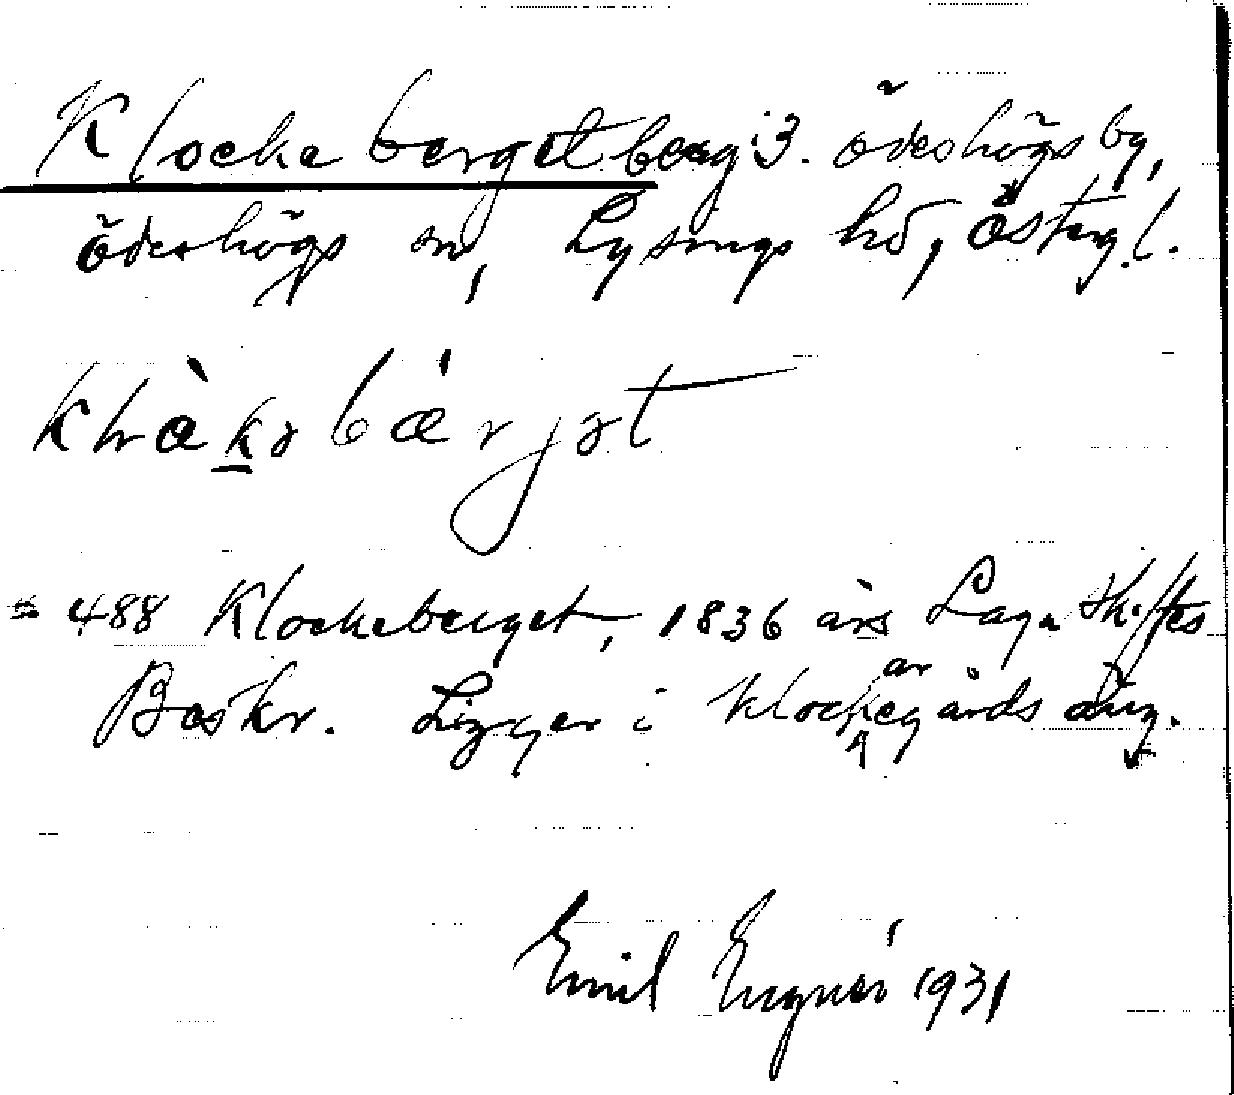 Klockeberget berg i 3. Ödeshögs by,
Ödeshögs sn, Lysings hd, Östergl.
= 488 Klockeberget, 1836 års Laga Skiftes
Beskr. Ligger i Klockaregårds äng.
Emil Engnér 1931